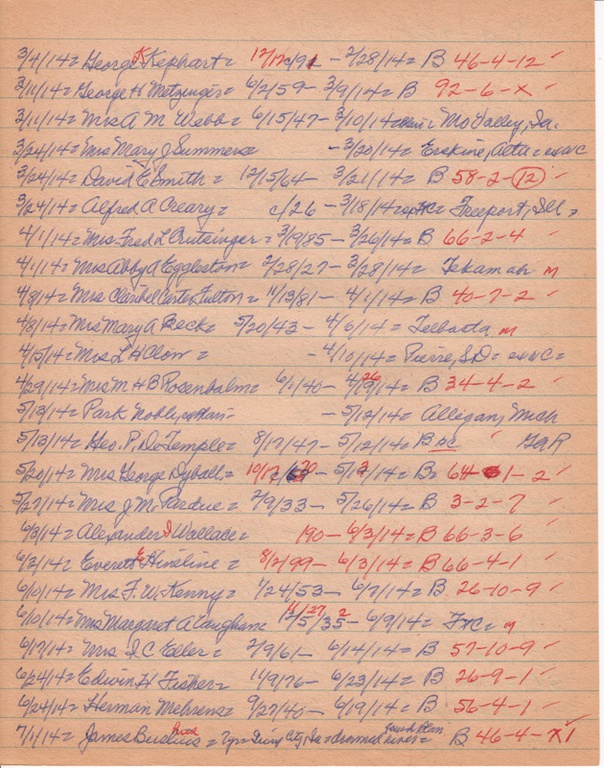 3/4/14= George K Kephart= 12/12c/91 - 2/28/14= B 46-4-12 ✓
3/11/14= George H Metzinger= 6/2/59- 3/9/14= B 92-6-X ✓
3/11/14= Mrs A M Webb= 6/15/47- 3/10/14= Mo Valley, Ia.
3/24/14= Mrs Mary J Summers= -3/20/14= Erskine, Alta=
3/24/14= David E Smith= 12/15/64- 3/21/14= B 58-2-12 ✓
3/24/14= Alfred A Creary= c/26 - 3/18/14= Freeport, Ill=
4/1/14= Mrs Fred L Crutsinger= 3/19/85- 3/26/14= B 66-2-4 ✓
4/1/14= Mrs Abby A Eggleston= 2/28/27- 3/28/14= Tekamah m
4/8/14= Mrs Claribel Carter Fulton= 11/13/81- 4/1/14= B 40-7-2 ✓
4/8/14= Mrs Mary A Beck= 5/20/43- 4/6/14= Telbasta m
4/15/14= Mrs L H Clow= -4/10/14= Pierre, S.D=
4/29/14= Mrs M H B Rosenbalm= 6/1/40- 4/26/14= B 34-4-2 ✓
5/13/14= Park Noble, -5/12/14= Allegan, Mich
5/13/14= Geo. P. DeTemple= 8/17/47- 5/12/14= B BC ✓ GAR
5/20/14= Mrs George Dyball= 10/17/70- 5/13/14= B= 64-1-2 ✓
5/27/14= Mrs J M Pardue= 2/9/33- 5/26/14= B 3-2-7 ✓
6/3/14= Alexander J Wallace= 190- 6/2/14= B 66-3-6 ✓
6/3/14= Everett E Hineline= 8/2/99- 6/3/14= B 66-4-1 ✓
6/10/14= Mrs F. W. Kenny= 1/24/53- 6/7/14= B 26-10-9 ✓
6/10/14= Mrs Margaret A Vaughan= 12/5/35- 6/9/14= m
6/17/14= Mrs I C Eller= 2/9/61- 6/14/14= B 57-10-9 ✓
6/24/14= Edwin H Fisher= 11/9/76- 6/23/14= B 26-9-1 ✓
6/24/14= Herman Mehrens= 9/27/40- 6/19/14= B 56-4-1 ✓
7/1/14= James= Sioux City, Ia= drowned B 46-4-X1 ✓